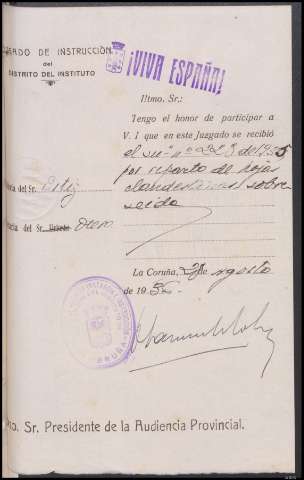 GADO DE INSTRUCCION
del
DISTRITO DEL INSTITUTO
¡VIVA ESPAÑA!
Iltmo. Sr.:
Tengo el honor de participar a
V. I que en este Juzgado se recibió
el nº 223 de 1935
por reparto de hojas
clandestinas sobre
seido
ría del Sr.
cía del Sr. Otero
La Coruña, de agosto
de 1936.
mo. Sr. Presidente de la Audiencia Provincial.